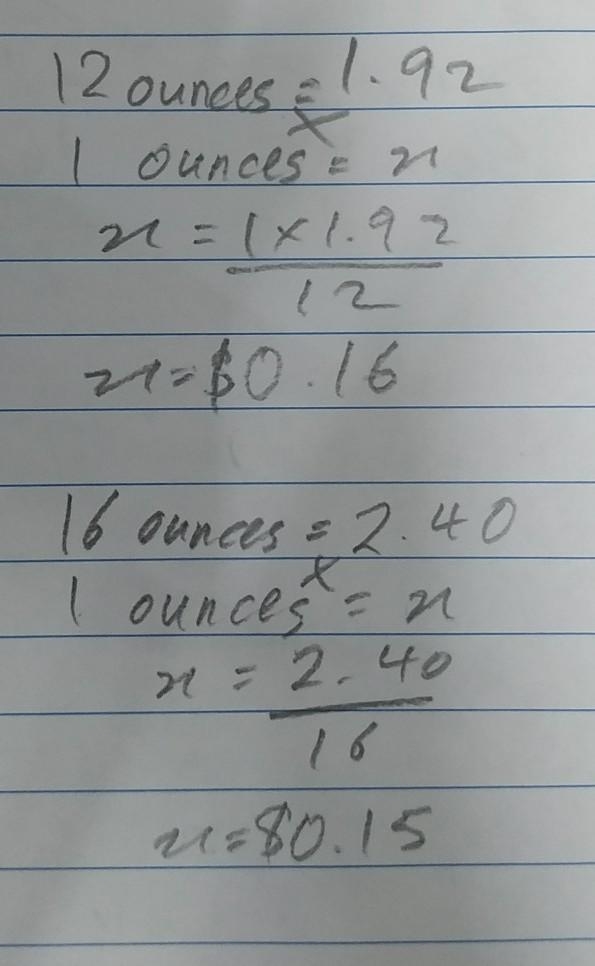 12 ounces = 1.92
x
1 ounces = x
x = 1 x 1.92
12
x = $0.16
16 ounces = 2.40
x
1 ounces = x
x = 2.40
16
x = $0.15